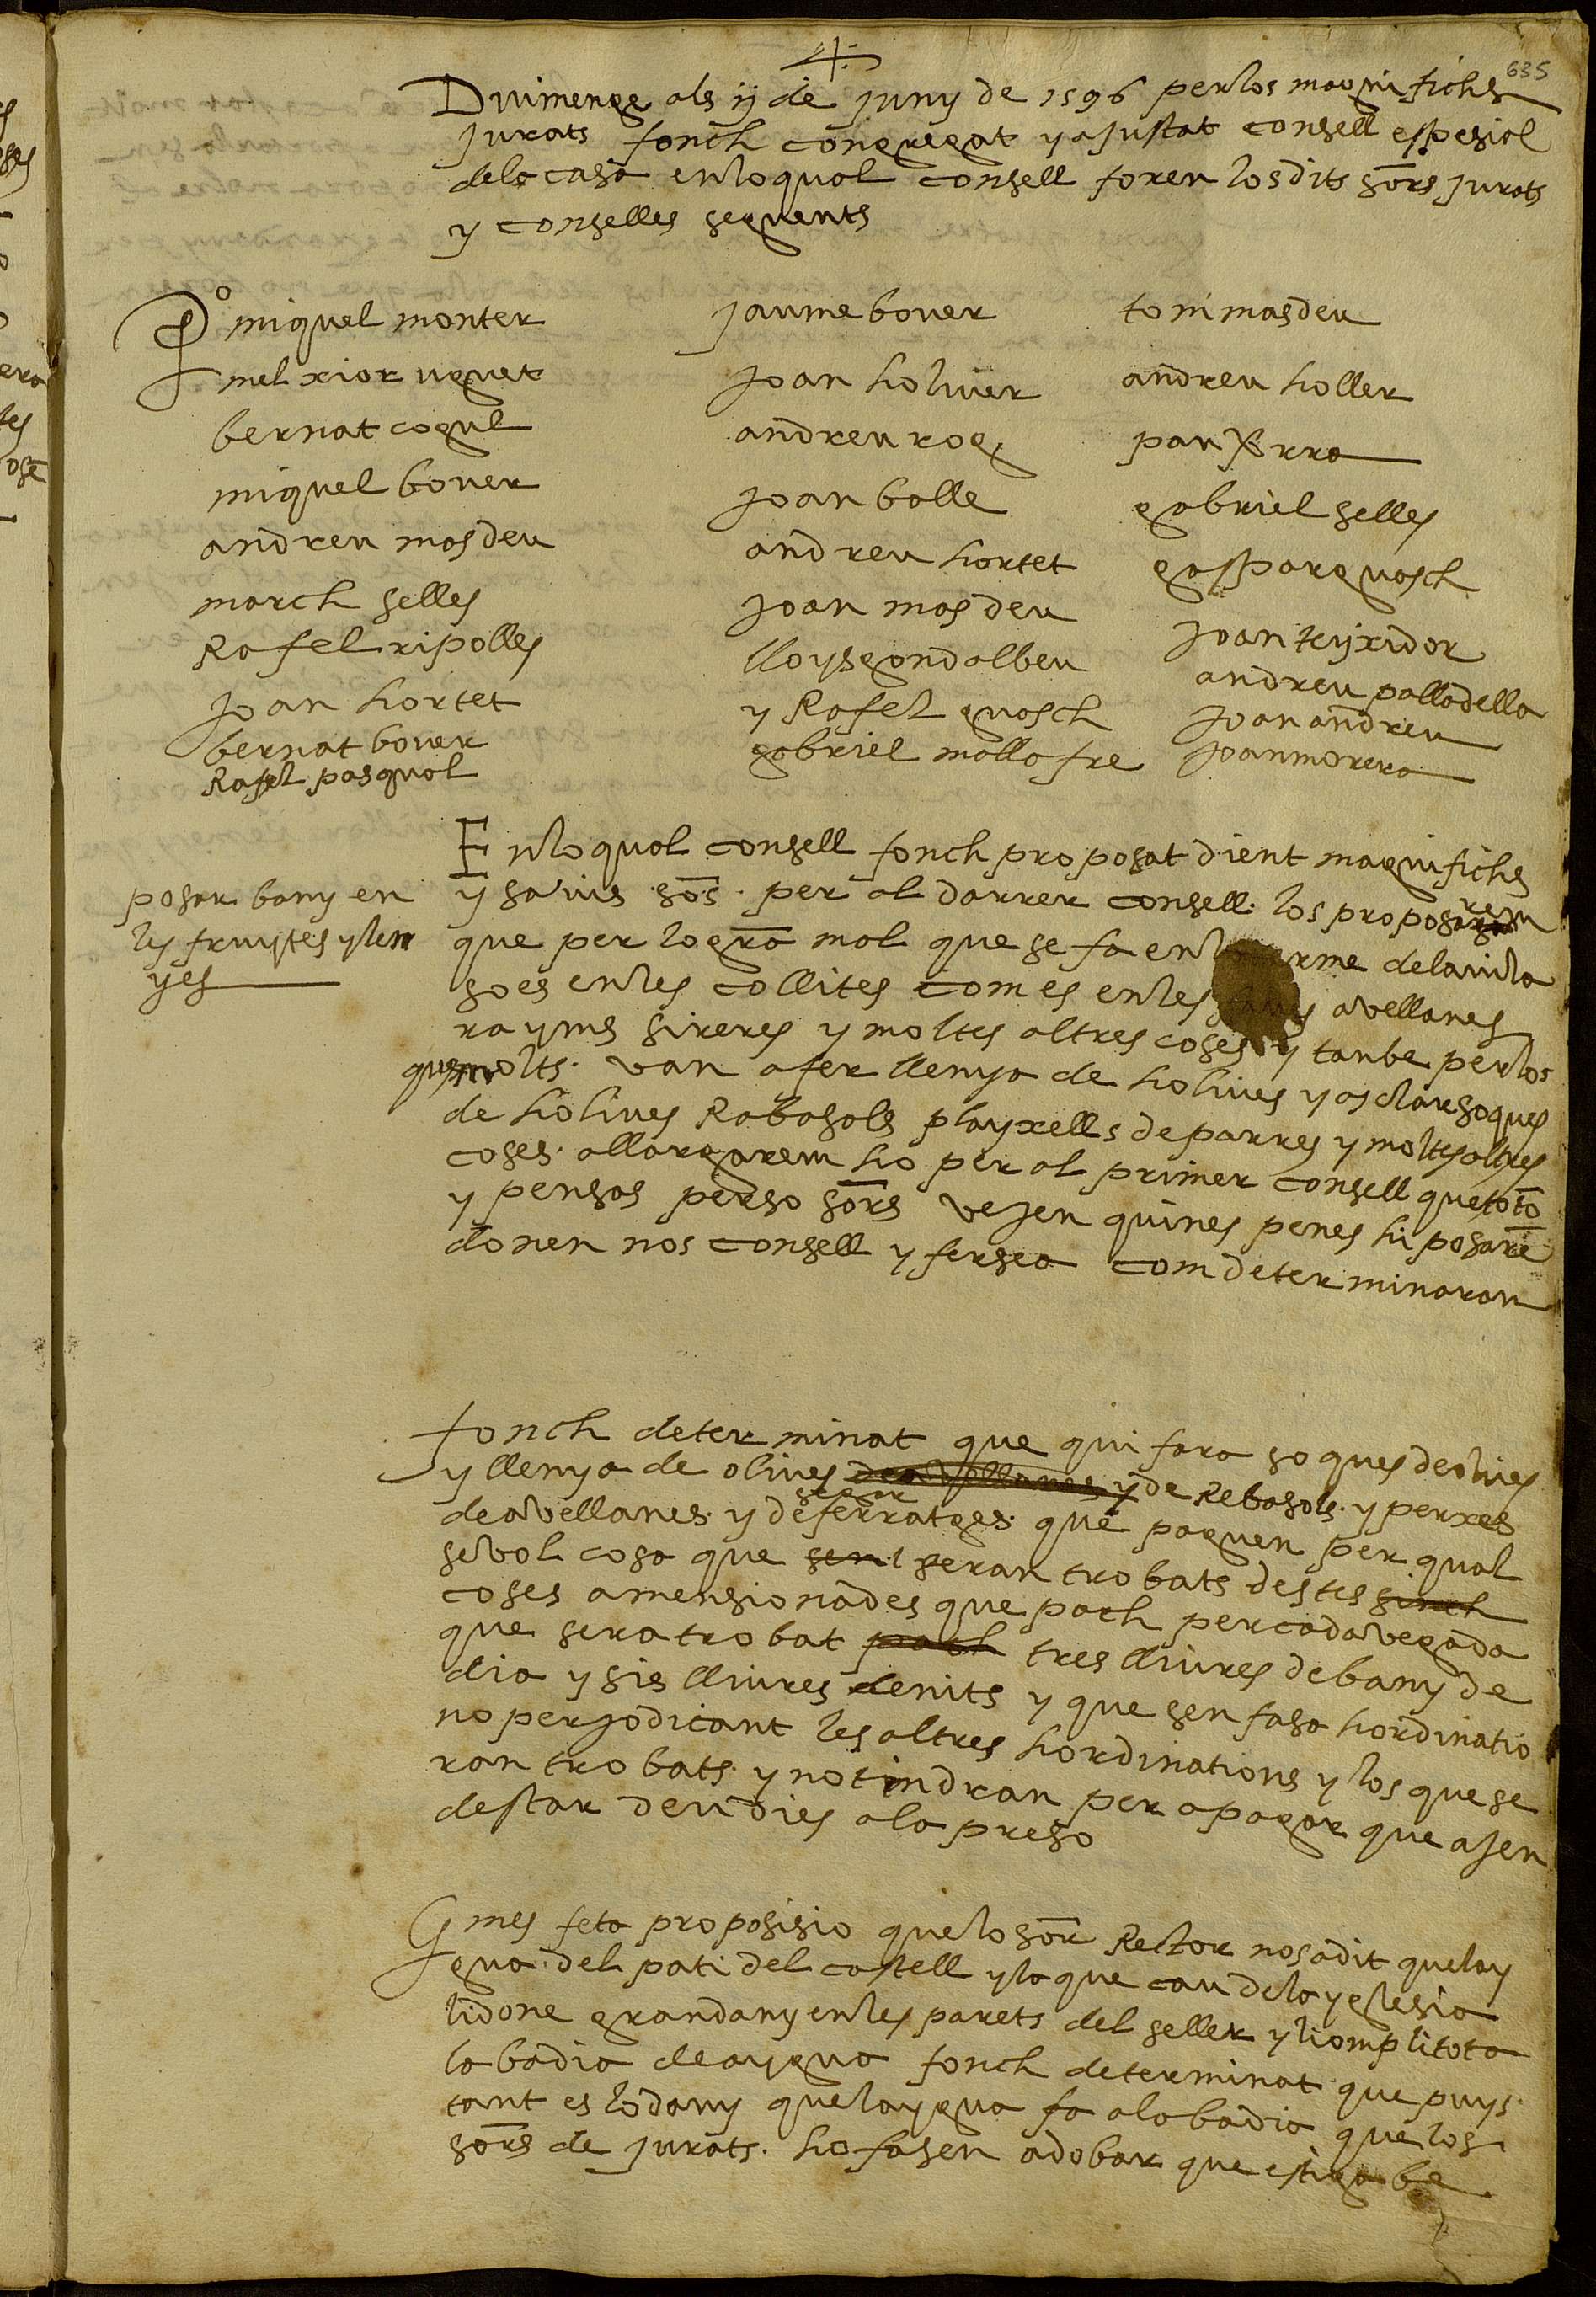 635
Diumenge als ij de juny de 1596 per los magnifichs
jurats fonch congregat y ajustat consell espesial
dela casa en lo qual consell foren los dits sors jurats
y conselles seguents
Po miquel monter
melxior uguet
bernat cogul
miquel bover
andreu masdeu
march selles
Rafel ripolles
joan hortet
bernat bover
Rafel pasqual
jaume bover
joan holiver
andreu rog
joan balle
andreu hortet
joan masdeu
lloys gondalbeu
y Rafel guasch
gabriel mallafre
toni masdeu
andreu holler
pau serra
gabriel selles
gaspar guasch
joan teyxidor
andreu palladella
joan andreu
joan morera
posar bany en
les fruytes y len
yes
En lo qual consell fonch proposat dient magnifichs
y savis sos per al darrer consell los proposarem
que per lo gra mal que se fa en lo terme de la vila
so es en les collites com es en les avellanes
rayms sireres y moltes altres coses y tanbe per los
que molts van a fer llenya de holives y asclar soques
de holives Rabasols playxells de parres y moltes altres
coses allargarem ho per al primer consell que tots to
y pensas perso sors vejen quines penes hi posare
donen nos consell y fersea com determinaran
fonch determinat que qui fara soques de olives
y llenya de olives de avellanes y de Rebasols y perxes
de avellanes y de segar ferratges que paguen per qual
sevol cosa que sen seran trobats destes sinch
coses amensionades que pach per cada vegada
que sera trobat pach tres lliures de bany de
dia y sis lliures de nits y que sen fasa hordinatio
no perjodicant les altres hordinations y los que se
ran trobats y no tindran per a pagar que ajen
destar deu dies a la preso
y mes feta proposisio que lo sor Rector nos a dit que lay
gua del pati del castell y la que cau de la yglesia
li done gran dany en les parets del seller y li ompli tota
la badia de aygua fonch determinat que puys
tant es lo dany que laygua fa a la badia que los
sors de jurats ho fasen adobar que estiga be